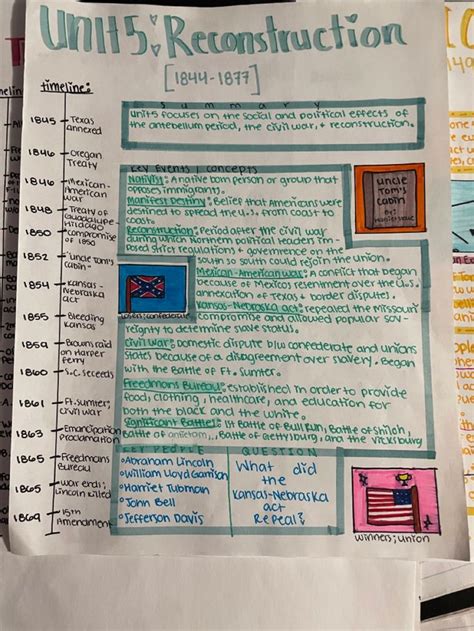 Unit 5: Reconstruction
[1844-1877]
timeline:
1845 Texas annexed
1846 Oregan Treaty
1846 Mexican-American war
1848 Treaty of Guadalupe-Hildago
1850 compromise of 1850
1852 "uncle Tom's cabin"
1854 Kansas-Nebraska act
1855 Bleeding Kansas
1859 Brown raid on Harper ferry
1860 S.C seceeds
1861 Ft. Sumter; civil war
1863 Emancipation proclamation
1865 Freedmans Bureau
1865 war ends; Lincoln killed
1869 15th Amendment
Summary
unit 5 focuses on the social and political effects of
the antebellum period, the civil war, + reconstruction.
Key Events / concepts
Nativist: A native born person or group that
opposes immigrants.
Manifest Destiny: Belief that Americans were
destined to spread the U.S. from coast to
coast.
Reconstruction: Period after the civil war
during which Northern political leaders im-
posed strict regulations + governence on the
south so south could rejoin the union.
Mexican-American war: A conflict that began
because of Mexicos resentment over the U.S.
annexation of Texas + border disputes.
Kansas-Nebraska act: repealed the Missouri
compromise and allowed popular sov-
reignty to determine slave status.
civil war: domestic dispute b/w confederate and unions
states because of a disagreement over slavery. Began
with the Battle of Ft. Sumter.
Freedmans Bureau: established in order to provide
food, clothing, healthcare, and education for
both the black and the white.
Significant Battles: 1st Battle of Bull Run, Battle of Shiloh,
Battle of anietam, Battle of Gettyburg, and the vicksburg
uncle
Tom's
cabin
losers; confederate
KEY PEOPLE
Abraham Lincoln
William Lloyd Garrison
Harriet Tubman
John Bell
Jefferson Davis
QUESTION
What did
the
Kansas-Nebraska
act
Repeal?
winners; union